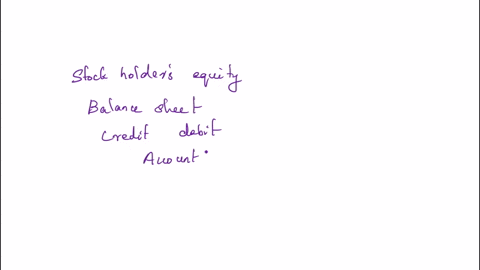 Stock holder's equity
Balance sheet
Credit debit
Account